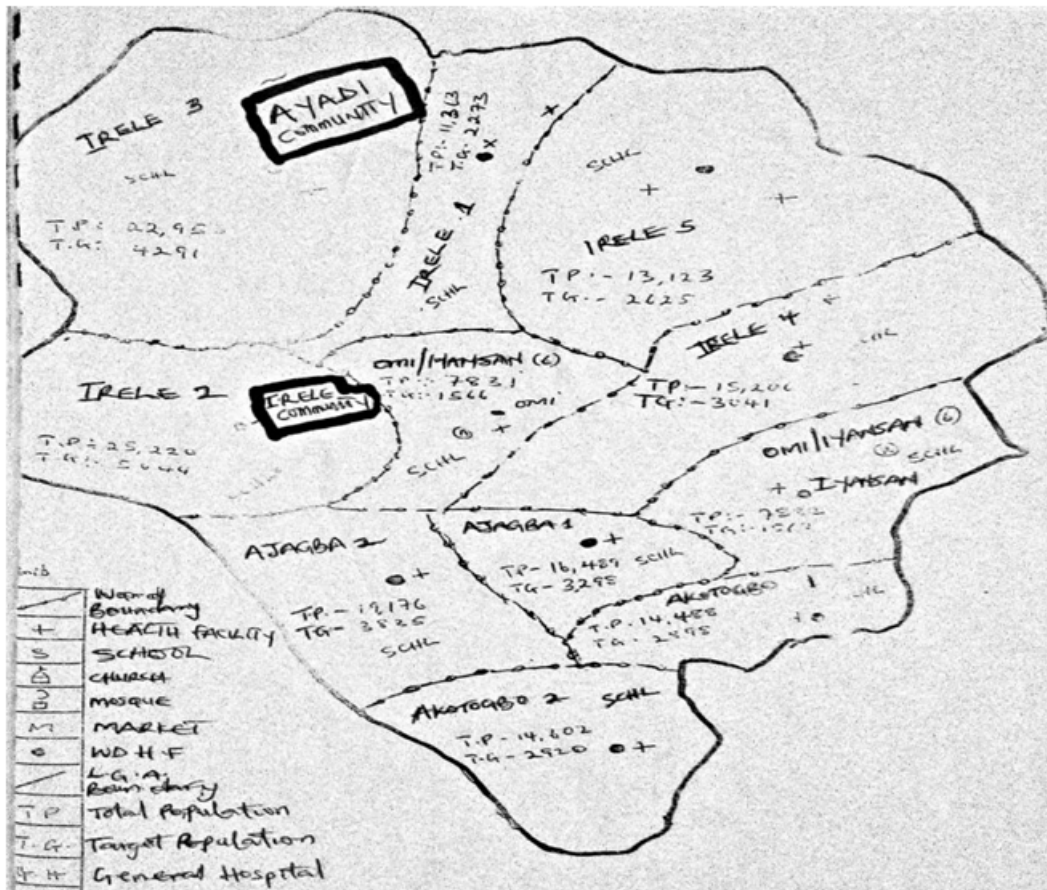 IRELE 3
AYADI
COMMUNITY
SCHL
T.P:- 22,95
T.G:- 4291
T.P:- 11,363
T.G:- 2273
x
IRELE 1
SCHL
SCHL
IRELE 5
T.P:- 13,123
T.G:- 2625
IRELE 4
T.P:- 15,206
TG:- 3041
IRELE 2
IRELE
COMMUNITY
T.P:- 25,220
T.G:- 5044
OMI/IYANSAN (6)
T.P:- 7831
TG:- 1566
OMI
SCHL
OMI/IYANSAN (6)
SCHL
IYANSAN
T.P:- 7832
AJAGBA 2
T.P.- 19,176
TG- 3835
SCHL
AJAGBA 1
TP- 16,489
SCHL
TG- 3,298
AKOTOGBO 1
T.P. 14,488
AKOTOGBO 2
SCHL
T.P- 14,602
T.G- 2920
Ward
Boundary
+ HEALTH FACILITY
S SCHOOL
CHURCH
MOSQUE
M MARKET
WD H F
L.G.A.
Boundary
T P Total Population
T.G. Target Population
General Hospital